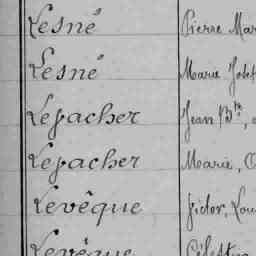 Lesné Pierre Mar
Lesné Marie Jose
Lepacher Jean Bte,
Lepacher Marie, C
Levêque Victor, Lou
Levêque Célestin